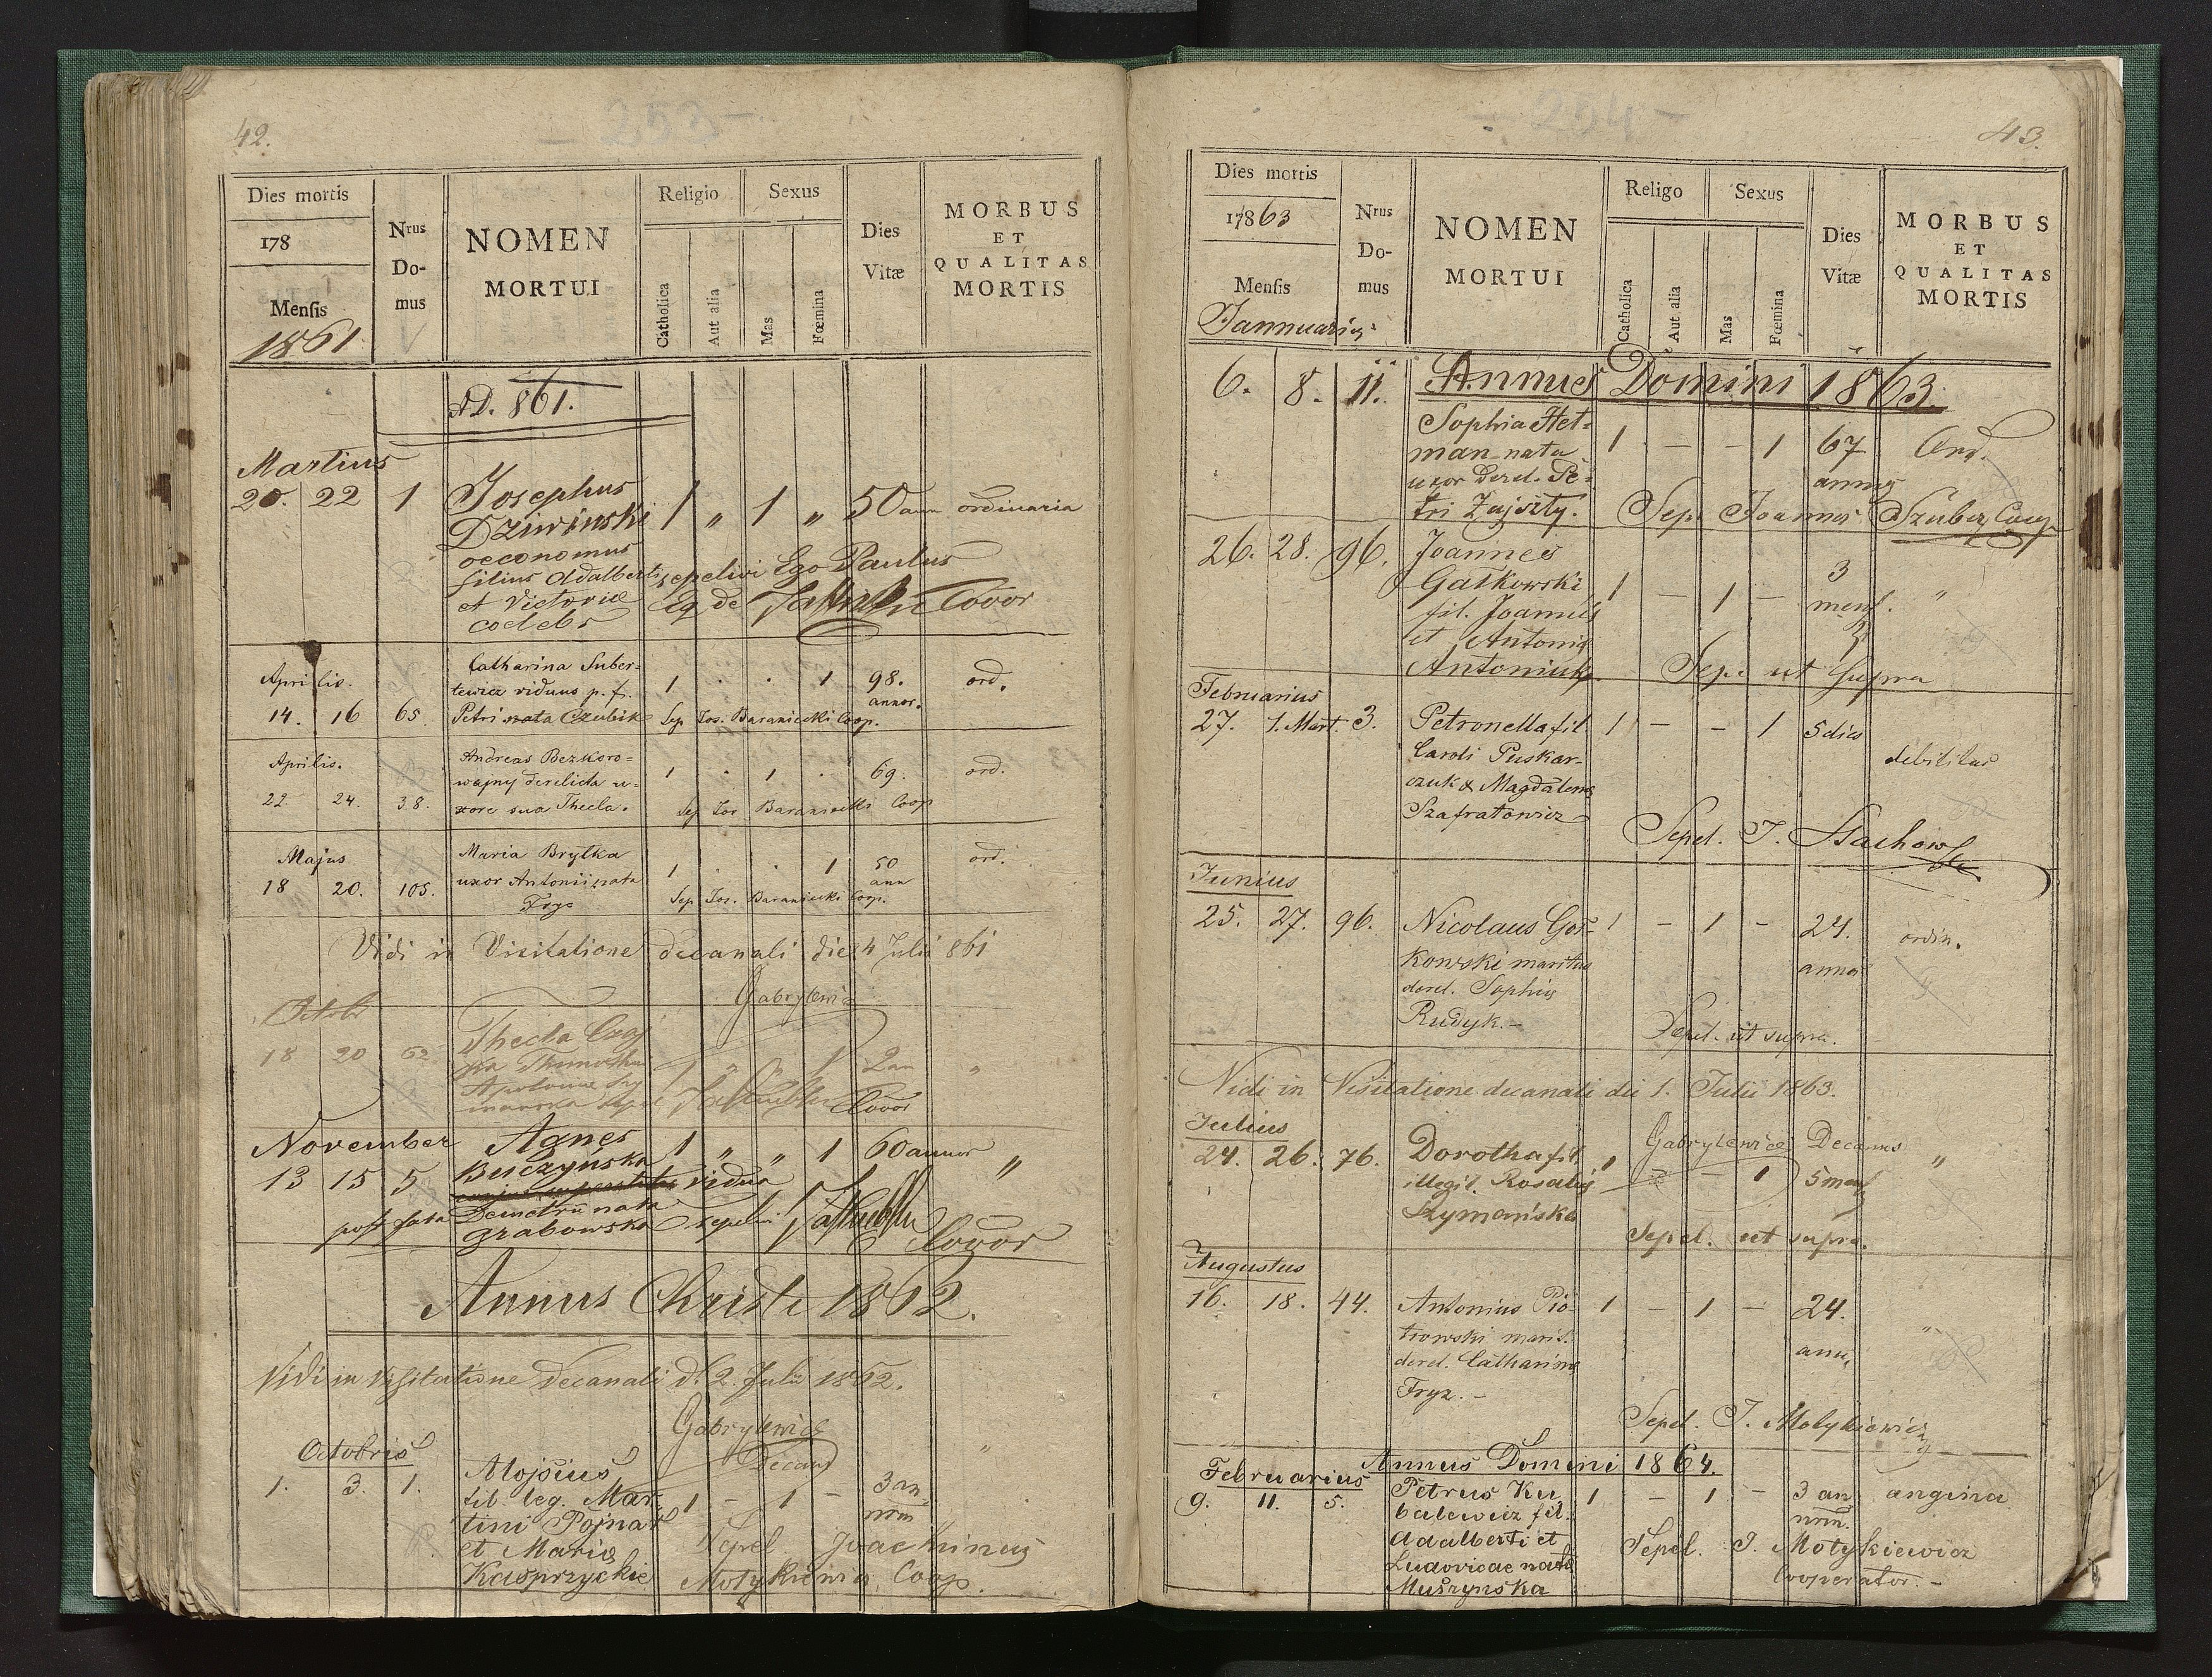 42.
- 253 -
Dies mortis
178
Mensis
1861
Nrus
Do-
mus
NOMEN
MORTUI
Religio
Catholica
Aut alia
Sexus
Mas
Fœmina
Dies
Vitæ
MORBUS
ET
QUALITAS
MORTIS
AD. 861.
Martius
20. 22 1 Josephus 1 " 1 " 50 ann ordinaria
Dziwinski
oeconomus
filius Adalberti sepelivi Ego Paulus
et Victoriæ Eq de
coelebs
Aprilis. Catharina Suber=
tewicz viduus p. f. 1 . . 1 98. ord.
annor.
14. 16 65. Petri nata Czubik Sep Jos. Baraniecki Coop.
Aprilis. Andreas Bezkoro=
wajny derelicta u= 1 . 1 . 69. ord.
22 24. 38. xore sua Thecla. Sep Jos Baraniecki Coop
Majus Maria Brytka
18 20. 105. uxor Antonii nata 1 . . 1 50 ord.
ann
Sep Jos. Baraniecki Coop.
Vidi in Visitatione decanali die 4 Julii 861
Gabrylewicz
Octob
18 20 62 Thecla 1 " " 1 2 an "
November Agnes 1 " " 1 60 annor "
13 15 5 Buczyńska vidua
post fata Demetrii nata
Grabowska sepelivi
Annus Christi 1862.
Vidi in Visitatione decanali d. 2. Julii 1862.
Gabrylewicz
Decans
Octobris
1. 3. 1. Alojsius
fil. leg. Mar- 1 - 1 - 3 an "
norum
tini Pojnar
et Maria Sepel Joachimus
Kasprzyckie Motykiewicz Coop.
43.
- 254 -
Dies mortis
17863
Mensis
Jannuarius
Nrus
Do-
mus
NOMEN
MORTUI
Religo
Catholica
Aut alia
Sexus
Mas
Fœmina
Dies
Vitæ
MORBUS
ET
QUALITAS
MORTIS
Annus Domini 1863.
6. 8. 11. Sophia Het=
man nata 1 - - 1 67 Ord.
uxor derel. Pe= annor
tri Zajszty. Sep. Joannes Szuber Coop
26. 28. 96. Joannes
Gałkowski 1 - 1 - 3 "
fil. Joannis mens.
et Antonia
Antoniuk. Sep. ut Supra
Februarius
27. 1. Mart. 3. Petronella fil. 1 - - 1 5 dies
Caroli Puskar- debilitas
czuk & Magdalena
Szafratowicz
Sepel. J. Stachow
Junius
25. 27. 96. Nicolaus Goł- 1 - 1 - 24. ordin.
kowski maritus annor
derel. Sophia
Rudyk.-
Sepel. ut supra.
Vidi in Visitatione decanali die 1. Julii 1863.
Gabrylewicz Decanus
Julius
24. 26. 76. Dorotha fil. 1 - 1 5 mens "
illegit. Rosalia
Szymańska
Sepel. ut supra.
Augustus
16. 18. 44. Antonius Pio- 1 - 1 - 24. "
trowski marit. ann.
derel. Catharina
Fryz.-
Sepel. J. Motykiewicz
Annus Domini 1864.
Februarius
9. 11. 5. Petrus Ku 1 - 1 - 3 an angina
balewicz fil. norum.
Adalberti et Sepel. J. Motykiewicz
Ludovicae nata Cooperator.-
Muszyńska